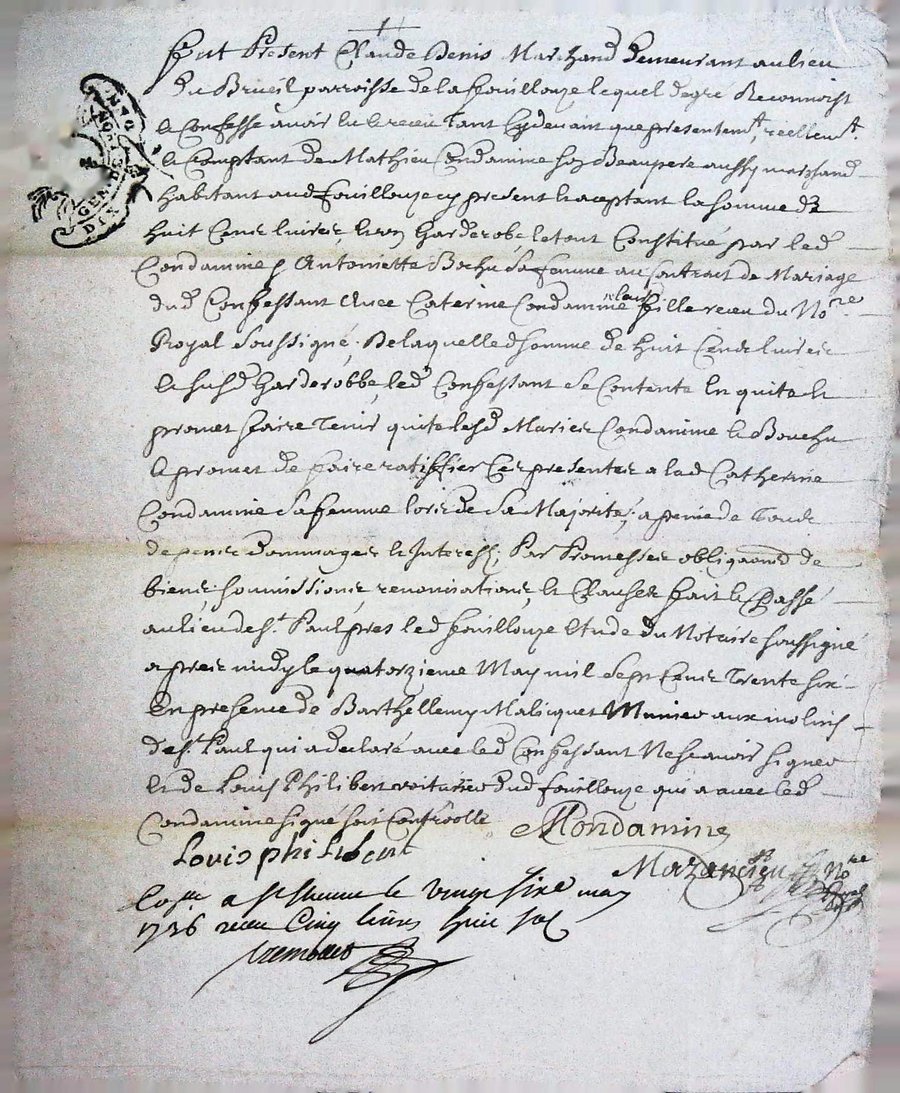 Fut Present Claude Denis Marchand Demeurant au lieu
Du Brueil parroisse de la fouillouze lequel de gre Reconnoist
& Confesse avoir Eu & receu Tant Cydevant que presentemt, reellemt.
& Comptant de Mathieu Condamine son Beaupere aussy marchand
habitant aud fouillouze cy present & aceptant la somme de
huit Cens livres, & un Garderobe le tout Constitué par led
Condamine & Antoinette Bochu Sa femme au Contract de Mariage
dud Confessant Avec Caterine Condamine leur fille receu du Nore
Royal Soussigné; De laquelle d somme de huit Cens livres
& susd Garderobbe, led Confessant Se Contente En quite &
promet faire Tenir quite lesd Maries Condamine & Bouchu
& promet de faire ratiffier Ces presentes a lad Catherine
Condamine Sa femme lors de Sa Majorité; a peine de Tous
depens Dommages & Interests; Par Promesses obligaons de
biens, soumissions, renonciations, & Clauses fait & Passé
au lieu de St. Paul pres led fouillouze Etude du Notaire soussigné
apres midy le quatorzieme May mil Sept Cens Trente six
En presence de Barthellemy Malicquet Munier aux molins
de St. Paul qui a declaré avec led Confessant Ne scavoir signer
& de Louis Philibert voiturier dud fouillouze qui a avec led
Condamine signé soit Controollé MCondamine
Louis philibert
Nore
a St Etienne le vingt sixe may
1736 receu Cinq livres huit sol
GEN DE LYON
DIX DEN